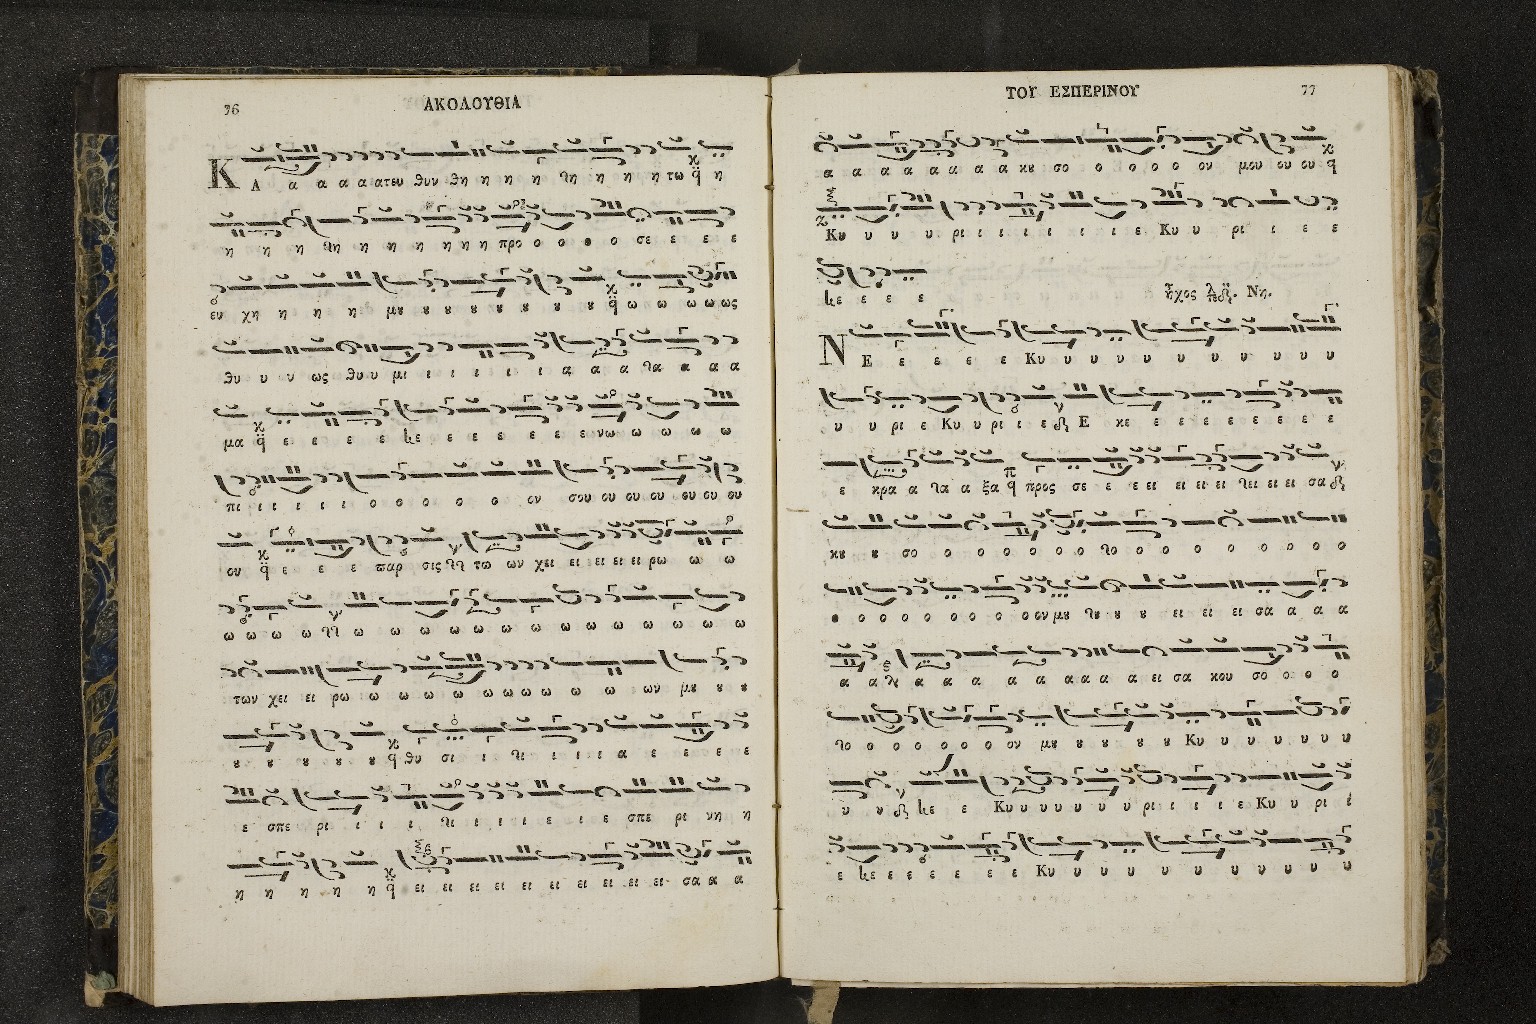 76
ΑΚΟΛΟΥΘΙΑ
Κ Α α α α α ατευ θυν θη η η η τη η η η τω η
η η η τη η η η η η η προ ο ο ο ο σε ε ε ε
ευ χη η η η η μȣ ȣ ȣ ȣ ȣ ȣ ȣ ȣ ω ω ω ω ως
θυ υ υ ως θυ υ μι ι ι ι ι ι α α α τα α α α
μα ε ε ε ε κε ε ε ε ε ε ε ε νω ω ω ω ω
πι ι ι ι ι ο ο ο ο ο ον σου ου ου ου ου ου ου
ου ε ε ε παρ σις τω ων χει ει ει ει ει ρω ω ω
ω ω ω ω ω ω ω ω ω ω ω ω ω ω ω ω ω
των χει ει ρω ω ω ω ω ω ω ω ω ω ω ων μȣ ȣ ȣ
ȣ ȣ ȣ ȣ ȣ θυ σι ι τι ι ι ι α ε ε ε ε
ε σπε ρι ι ι ι τι ι ι ι ε ι ε σπε ρι νη η
η η η η η ει ει ει ει ει ει ει ει ει ει σα α α
ΤΟΥ ΕΣΠΕΡΙΝΟΥ
77
α α α α α α α α κυ σο ο ο ο ο ον μου ου ου
Κυ υ υ υ ρι ι ι ι ι ι ι ε Κυ υ ρι ι ε ε
κε ε ε ε
ἦχος Νη.
Ν Ε ε ε ε ε Κυ υ υ υ υ υ υ υ υ υ υ
υ υ ρι ε Κυ υ ρι ι ε Ε κε ε ε ε ε ε ε ε
ε κρα α τα α ξα προς σε ε ε ει ει ει ει τει ει ει σα
κυ ȣ σο ο ο ο ο ο ο το ο ο ο ο ο ο ο ο
ο ο ο ο ο ο ο ο ονμȣ τȣ ȣ ȣ ει ει ει σα α α α
α α α α α α α α α α α ει σα κου σο ο ο ο
το ο ο ο ο ο ο ον μȣ ȣ ȣ ȣ ȣ Κυ υ υ υ υ υ υ
υ υ κε ε Κυ υ υ υ υ υ υ ρι ι ι ι ε Κυ υ ρι ι
ε κε ε ε ε ε ε ε Κυ υ υ υ υ υ υ υ υ υ υ